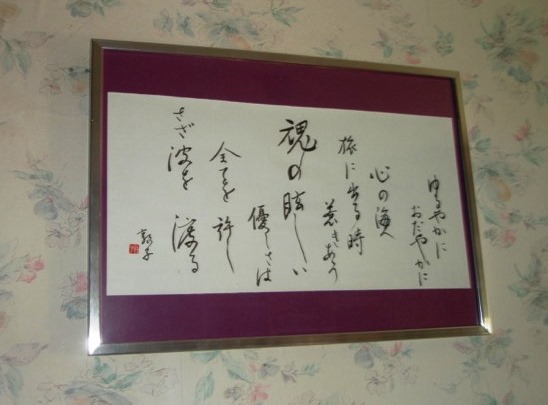 ゆるやかに
おだやかに
心の海へ
旅に出る時
惹きあう
魂の眩しい
優しさは
全てを許し
さざ波を渡る